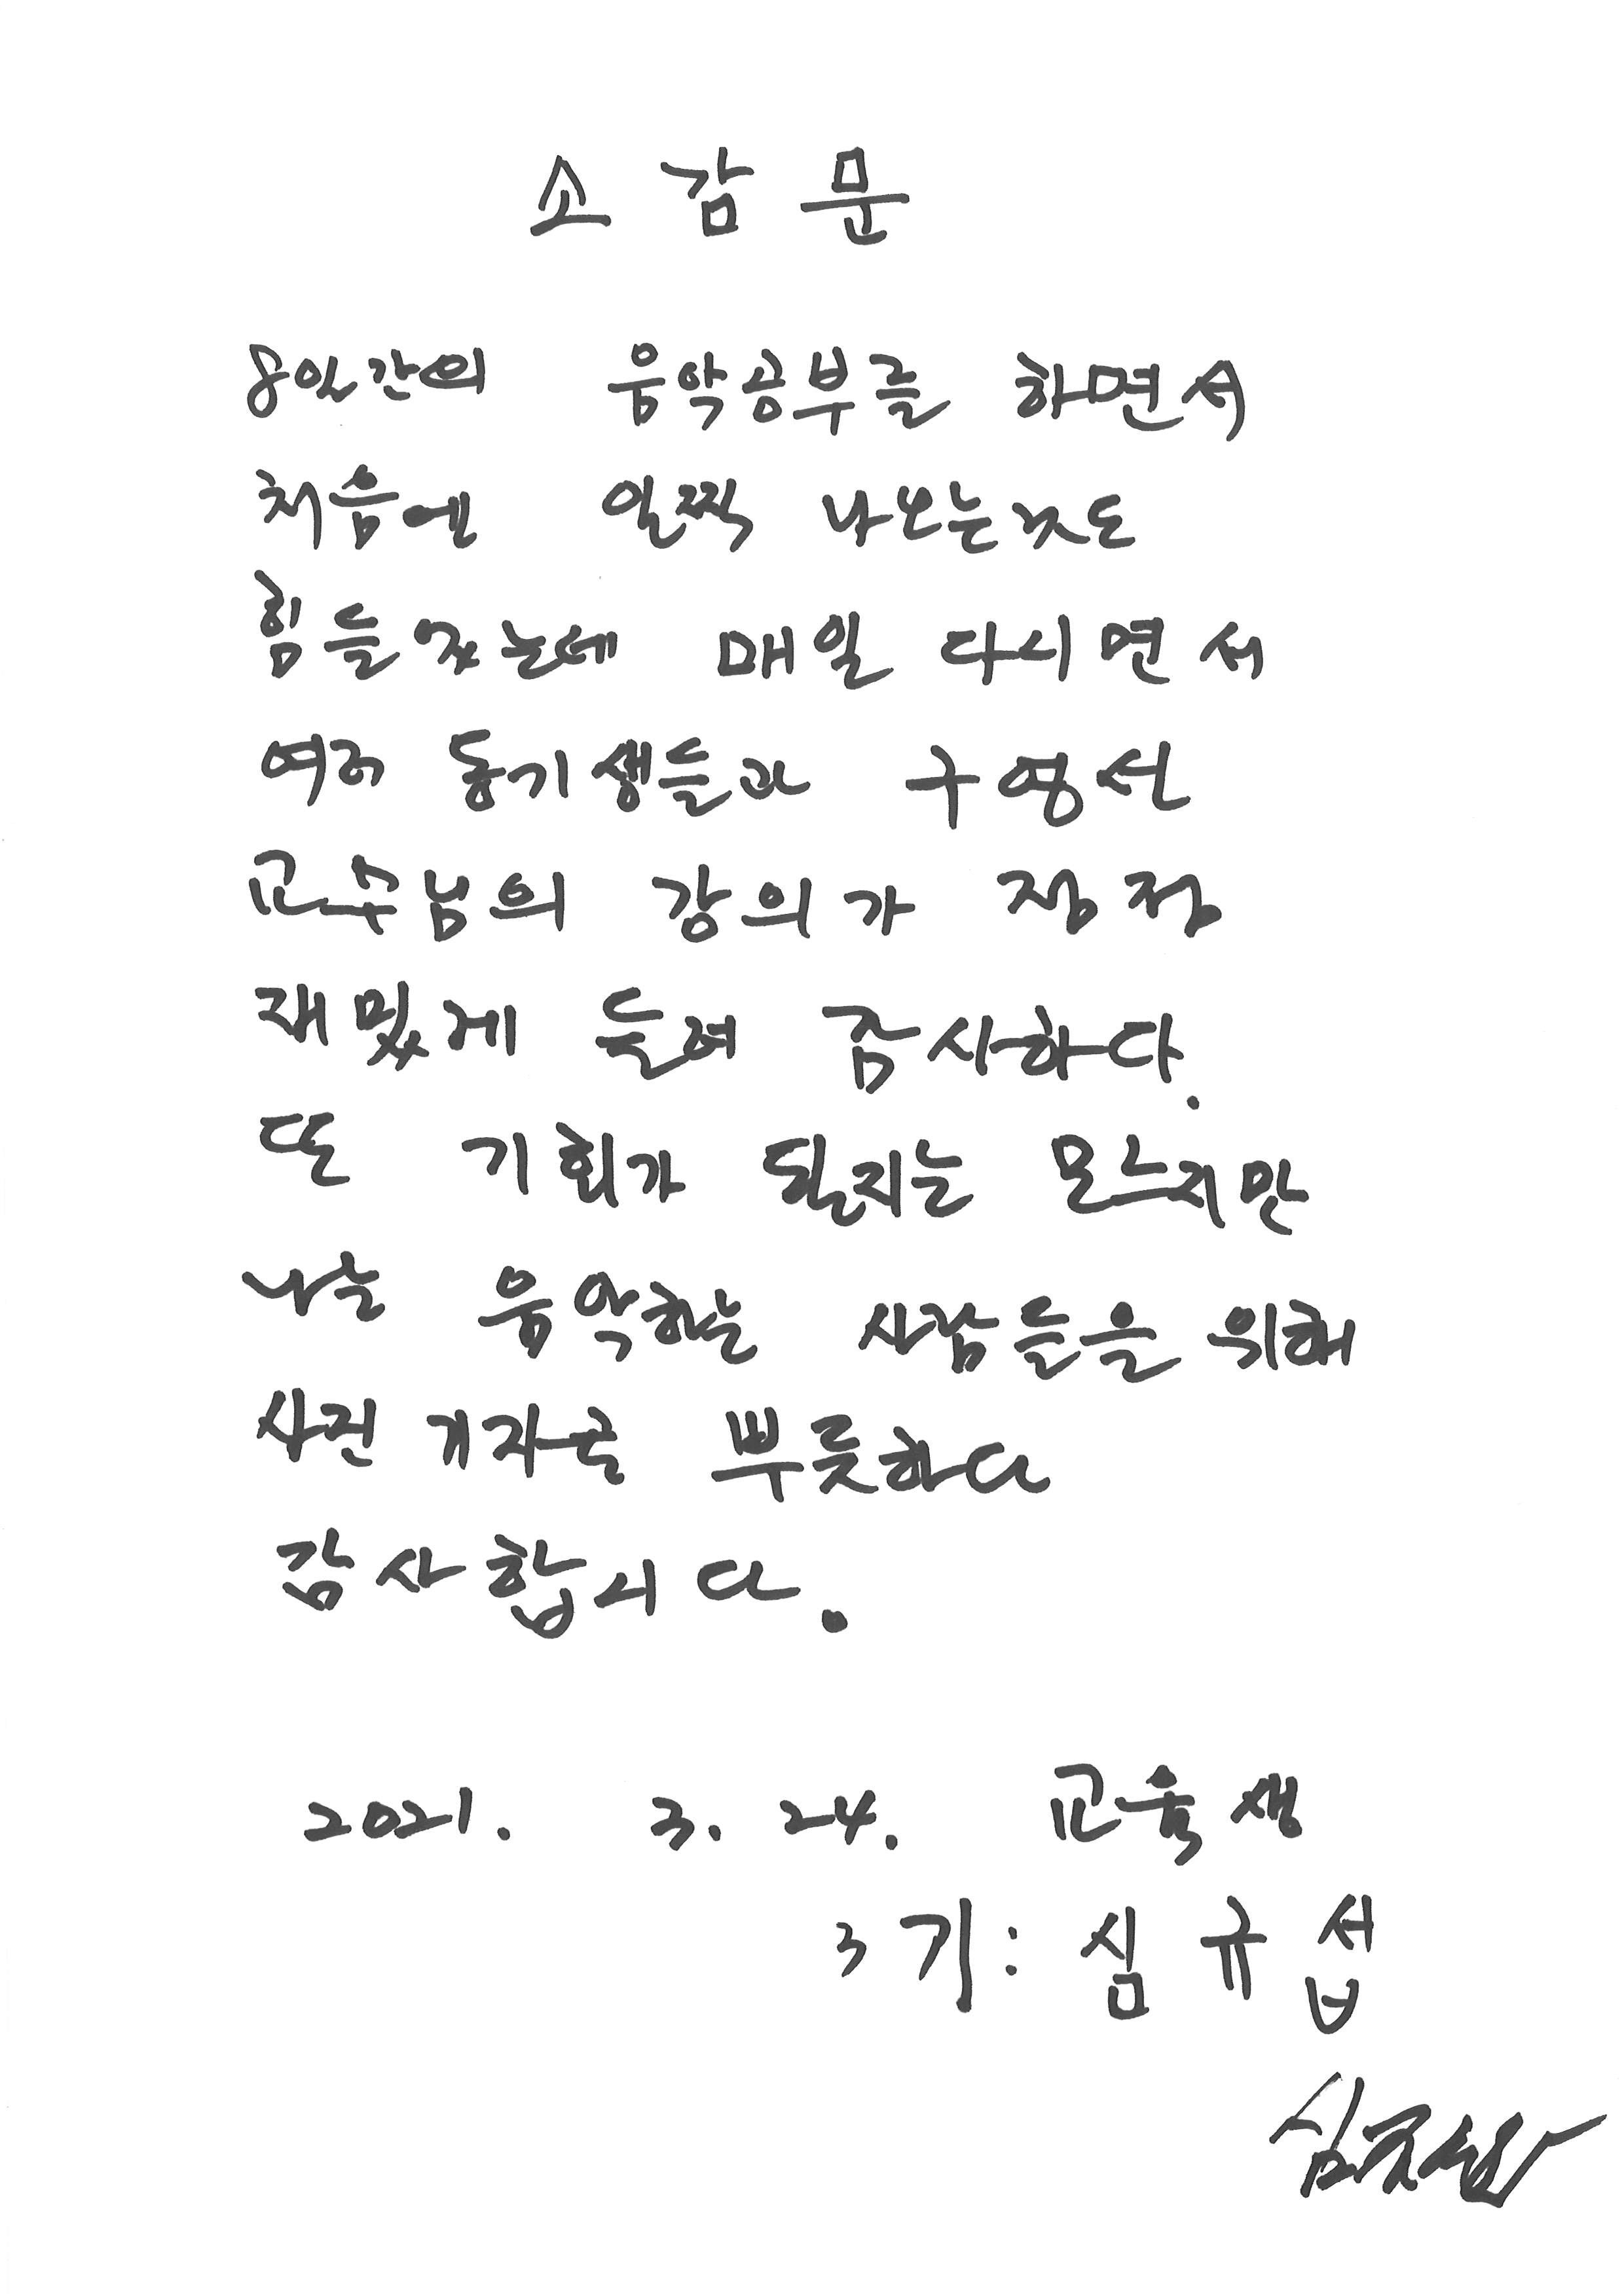 소감문
8일간의 음악공부를 하면서
처음엔 일찍 나오는것도
힘들었는데 매일 다시면서
여러 동기생들과 구영선
교수님의 강의가 점점
재밌게 들려 감사하다.
또 기회가 될지는 모느지만
나는 음악하는 사람들을 위해
사진 기자은 뿌듯하다
감사합니다.
2021. 3. 24. 교육생
3기: 심규섭